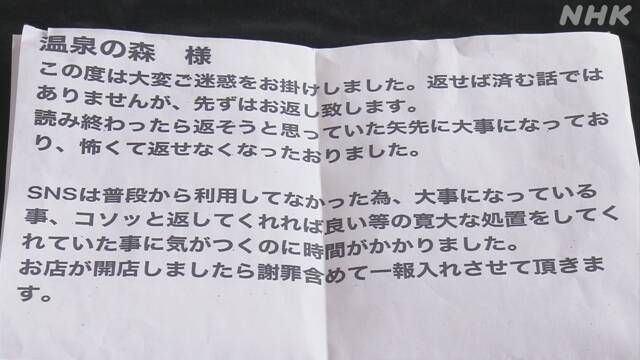 NHK
温泉の森　様
この度は大変ご迷惑をお掛けしました。返せば済む話では
ありませんが、先ずはお返し致します。
読み終わったら返そうと思っていた矢先に大事になってお
り、怖くて返せなくなったおりました。
SNSは普段から利用してなかった為、大事になっている
事、コソッと返してくれれば良い等の寛大な処置をしてく
れていた事に気がつくのに時間がかかりました。
お店が開店しましたら謝罪含めて一報入れさせて頂きま
す。